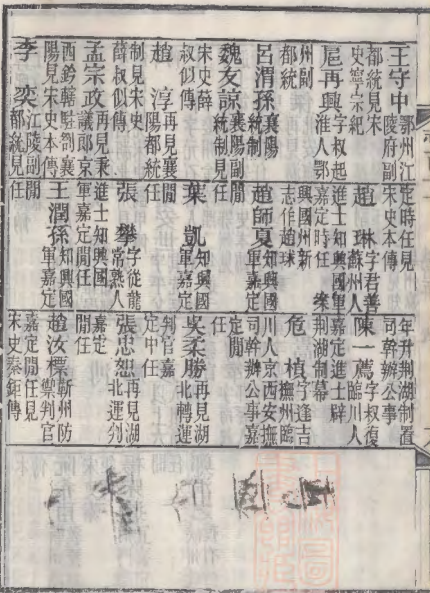 王守中 鄂州江陵府副
都統見宋史寧宗紀
扈再興 字叔起淮人鄂
州副都統
呂渭孫 襄陽統制
魏友諒 襄陽副統制見
宋史薛叔似傳
趙淳 再見襄陽都統
制見宋史薛叔似傳
孟宗政 再見議郎京
西鈐轄駐劄襄陽見宋史本傳
李奕 江陵副都統見
定時任見宋史本傳
趙琳 字君善蘇州人
進士知興國軍嘉定時任
興國州新志作趙
趙師夏 知興國軍嘉定
閒任
葉凱 知興國軍嘉定
閒任
張攀 字從龍常熟人
進士知興國軍嘉定閒任
王潤孫 知興國軍嘉定
閒任
年升荆湖制置司幹辦公事
陳一薦 字叔復臨川人
嘉定進士辟荆湖制幕
危楨 字逢吉撫州臨
川人京西安撫司幹辦公事嘉
定閒任
吳柔勝 再見湖北轉運
判官嘉定中任
張忠恕 再見湖北運判
嘉定閒任
趙汝標 蘄州防禦判官
嘉定閒任見宋史秦鉅傳